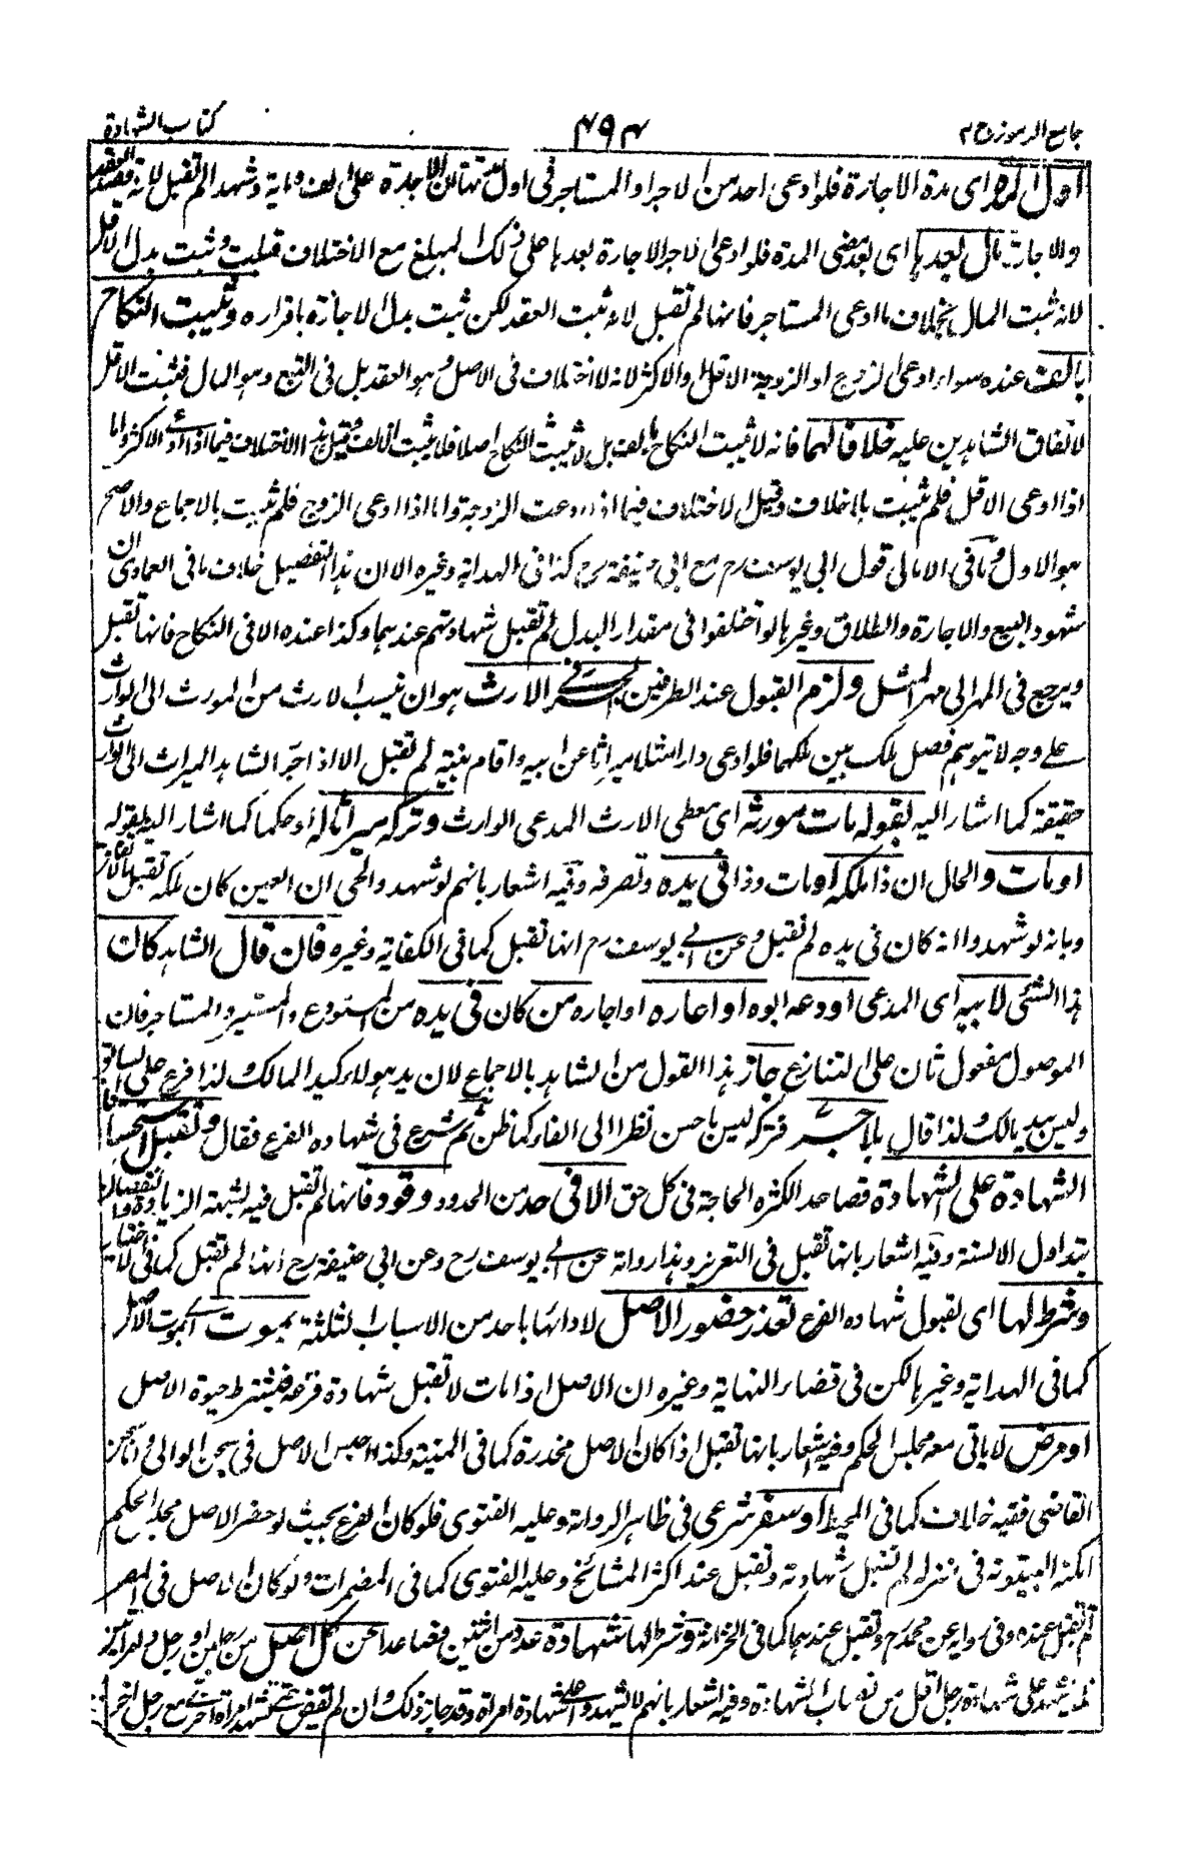 جامع الرموز ج ٢
٤٩٤
كتاب الشهادة
اول المدة اى مدة الاجازة فلو ادعى احد من الاجر او المستاجر فى اول الاجارة على الف ومایة وشهد الم تقبل لانه
والاجارة مال بعدها اى بعد مضى المدة فلو ادعى الاجر الاجارة بعدها على ذلك المبلغ مع الاختلاف قبلت وثبت بدل الاقل
لانه ثبت المال بخلاف ما ادعى المستاجر فانها لم تقبل لانه ثبت العقد لكن ثبت بدل الاجازة باقراره ويثبت النكاح
بالف عنده سواء ادعى الزوج او الزوجة الاقل او الاكثر لانه لا اختلاف فى الاصل وهو العقد بل فى التبع وهو المال فثبت الاقل
لاتفاق الشاهدين عليه خلافا لهما فانه لا يثبت النكاح بالف بل لا يثبت النكاح اصلا فلا يثبت الالف وقيل هذا الاختلاف فيما اذا ادعى الاكثر واما
اذا ادعى الاقل فلم يثبت بلا خلاف وقيل الاختلاف فيما اذا ادعت الزوجة واما اذا ادعى الزوج فلم يثبت بالاجماع والاصح
هو الاول وما فى الامالى قول ابي يوسف رح مع ابي حنيفة رح كذا فى الهداية وغيره الا ان هذا التفصيل خلاف ما فى العمادى ان
شهود البيع والاجارة والطلاق وغيرها لو اختلفوا فى مقدار البدل لم تقبل شهادتهم عندهما وكذا عنده الا فى النكاح فانها تقبل
ويرجع فى المهر الى مهر المثل ولزم القبول عند الطرفين الجر فى الارث هو ان ينسب الارث من المورث الى الوارث
على وجه لا يتوهم فصل ملك بين ملكهما فلو ادعى دارا مثلا ميراثا عن ابيه واقام بينة لم تقبل الا اذا جر الشاهد الميراث الى الوارث
حقيقة كما اشار اليه بقوله مات مورثه اى معطى الارث المدعى الوارث وتركه ميراثا له او حكما كما اشار اليه بقوله
او مات والحال ان ذا ملكه او مات وذا فى يده وتصرفه وفيه اشعار بانهم لو شهدوا لحى ان العين كان ملكه تقبل
وبانه لو شهدوا انه كان فى يده لم تقبل وعن ابى يوسف رح انها تقبل كما فى الكفاية وغيره فان قال الشاهد كان
هذا الشئ لابيه اى المدعى اودعه ابوه او اعاره او اجاره من كان فى يده من المستودع والمستعير والمستاجر فان
الموصول مفعول ثان على التنازع جاز هذا القول من الشاهد بالاجماع لان يد هولاء كيد المالك لذا فرع على
وليس بيد مالك ولذا قال بلا جر فتركه ليس باحسن نظرا الى الفاء كما ظن ثم شرع فى شهادة الفرع فقال وتقبل استحسانا
الشهادة على الشهادة فصاعدا لكثرة الحاجة فى كل حق الا فى حد من الحدود وقود فانها لم تقبل فيه لشبهة الزيادة والنقصان
بتداول الالسنة وفيه اشعار بانها تقبل فى التعزير وهذا رواية عن ابى يوسف رح وعن ابي حنيفة رح انها لم تقبل كما فى الاختيار
وشرط لها اى لقبول شهادة الفرع تعذر حضور الاصل لادائها باحد من الاسباب الثلثة بموت اى بموت الاصل
كما فى الهداية وغيرها لكن فى قضاء النهاية وغيره ان الاصل اذا مات لا تقبل شهادة فرعه فيشترط حيوة الاصل
او مرض لا ياتى معه مجلس الحكم وفيه اشعار بانها تقبل اذا كان الاصل مخدرة كما فى المنية وكذا حبس الاصل فى سجن الوالى واما سجن
القاضى ففيه خلاف كما فى المحيط او سفر شرعى فى ظاهر الرواية وعليه الفتوى فلو كان الفرع بحيث لو حضر الاصل مجلس الحكم
امكنه البيتوتة فى منزله لم تقبل شهادته وتقبل عند اكثر المشائخ وعليه الفتوى كما فى المضمرات ولو كان الاصل فى المصر
لم تقبل عنده وفى رواية عن محمد رح وتقبل عندهما كما فى الخزانة وشرط لها شهادة عدد من اثنين فصاعدا عن كل اصل من رجلين او رجل وامراتين
على شهادة رجل اقل من نصاب الشهادة وفيه اشعار بانهم لا يشهدوا على شهادة امراة وقد جاز ذلك وان لم تقبض حتى تشهد امراة اخرى مع رجل اخر